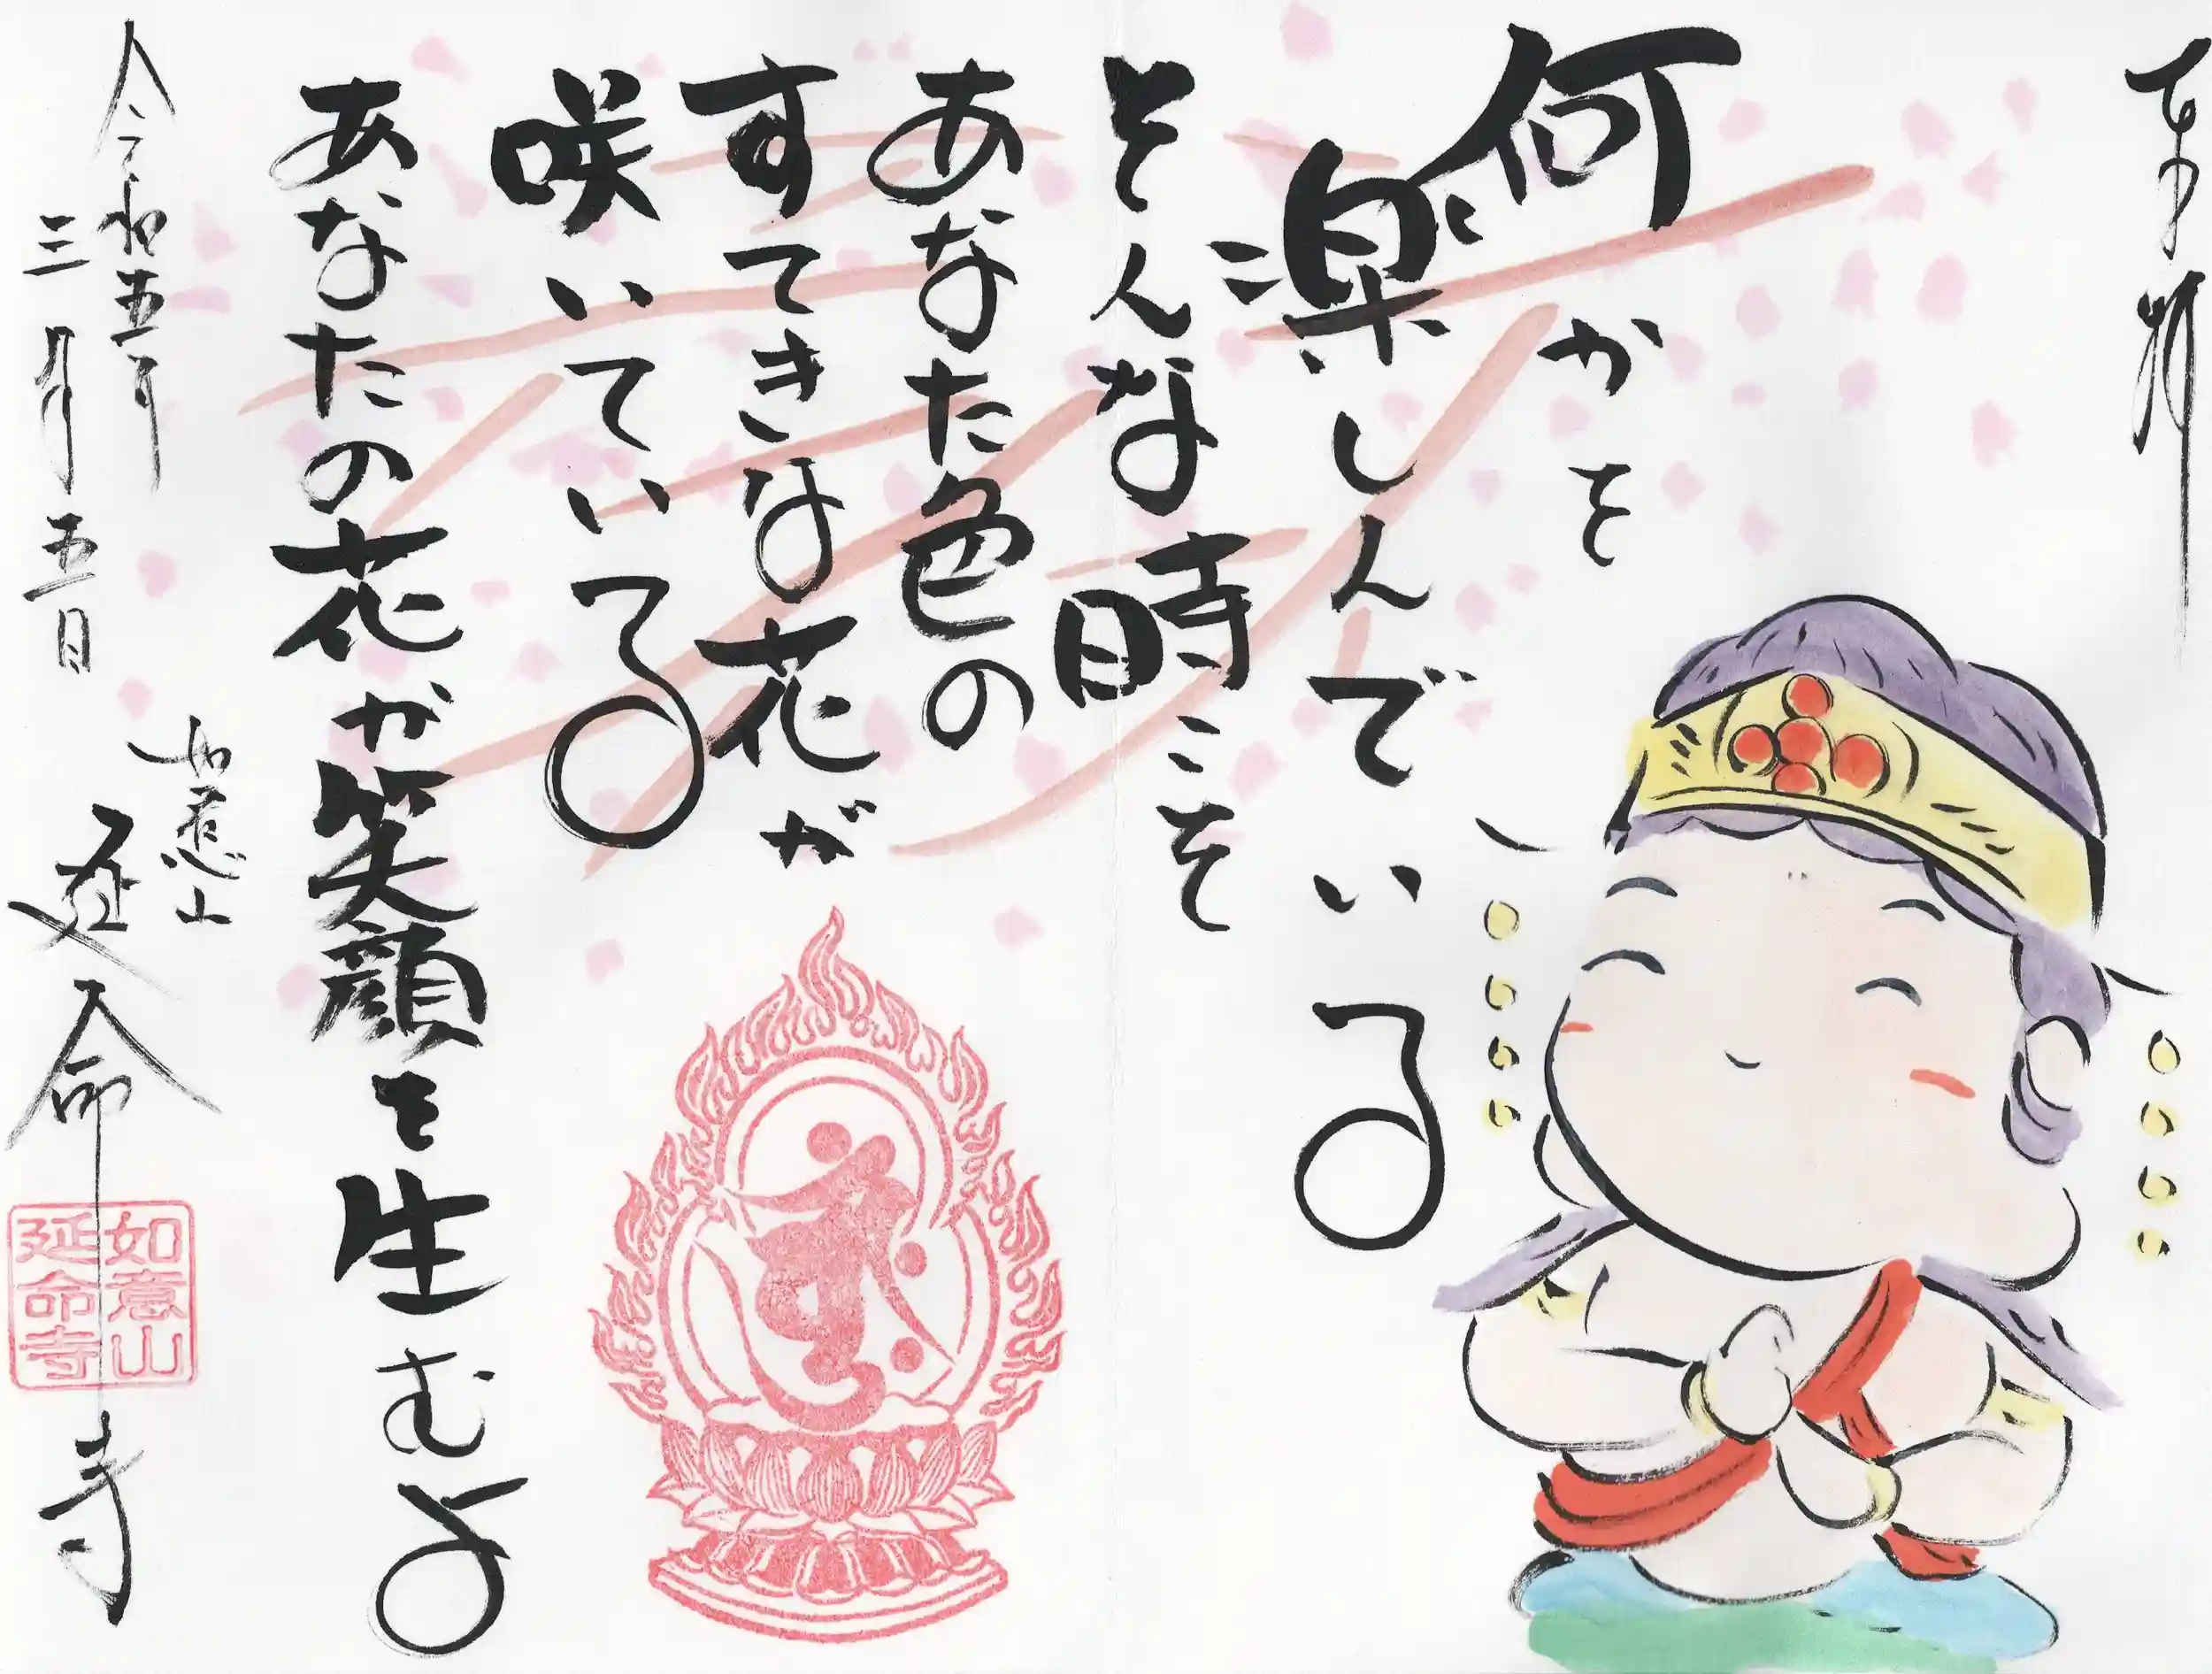 奉拝
何かを
楽しんでいる
そんな時こそ
あなた色の
すてきな花が
咲いている
あなたの花が笑顔を生むよ
令和五年
三月五日
如意山
延命寺
如意山
延命寺